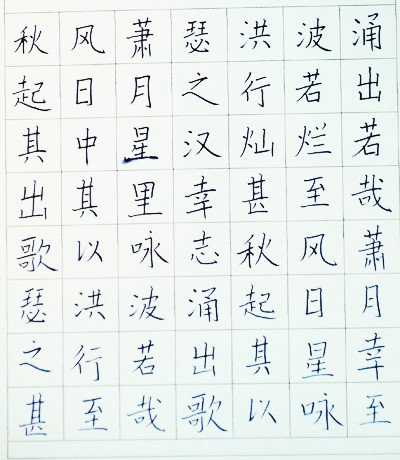 秋风萧瑟洪波涌
起日月之行若出
其中星汉灿烂若
出其里幸甚至哉
歌以咏志秋风萧
瑟洪波涌起日月
之行若出其星幸
甚至哉歌以咏至